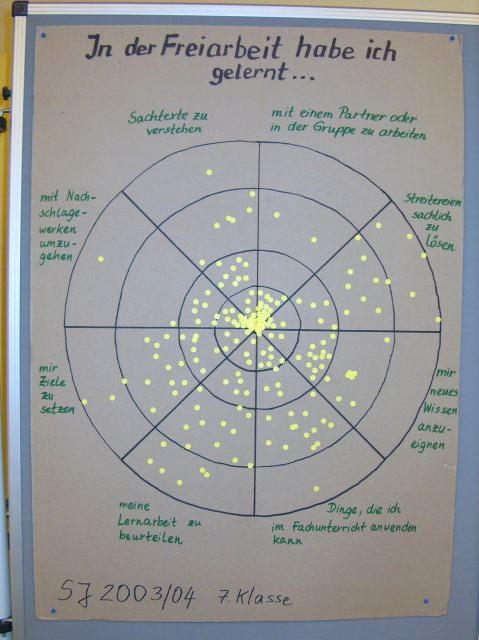 In der Freiarbeit habe ich
gelernt...
Sachtexte zu
verstehen
mit einem Partner oder
in der Gruppe zu arbeiten
mit Nach-
schlage-
werken
umzu-
gehen
Streitereien
sachlich
zu
lösen
mir
Ziele
zu
setzen
mir
neues
Wissen
anzu-
eignen
meine
Lernarbeit zu
beurteilen
Dinge, die ich
im Fachunterricht anwenden
kann
SJ 2003/04 7. Klasse